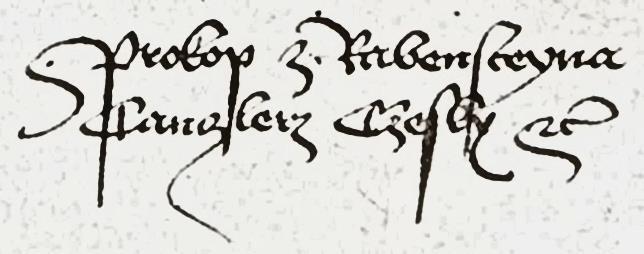 Prokop z Rabensteyna
Canczlerz Czesky ꝛc̃